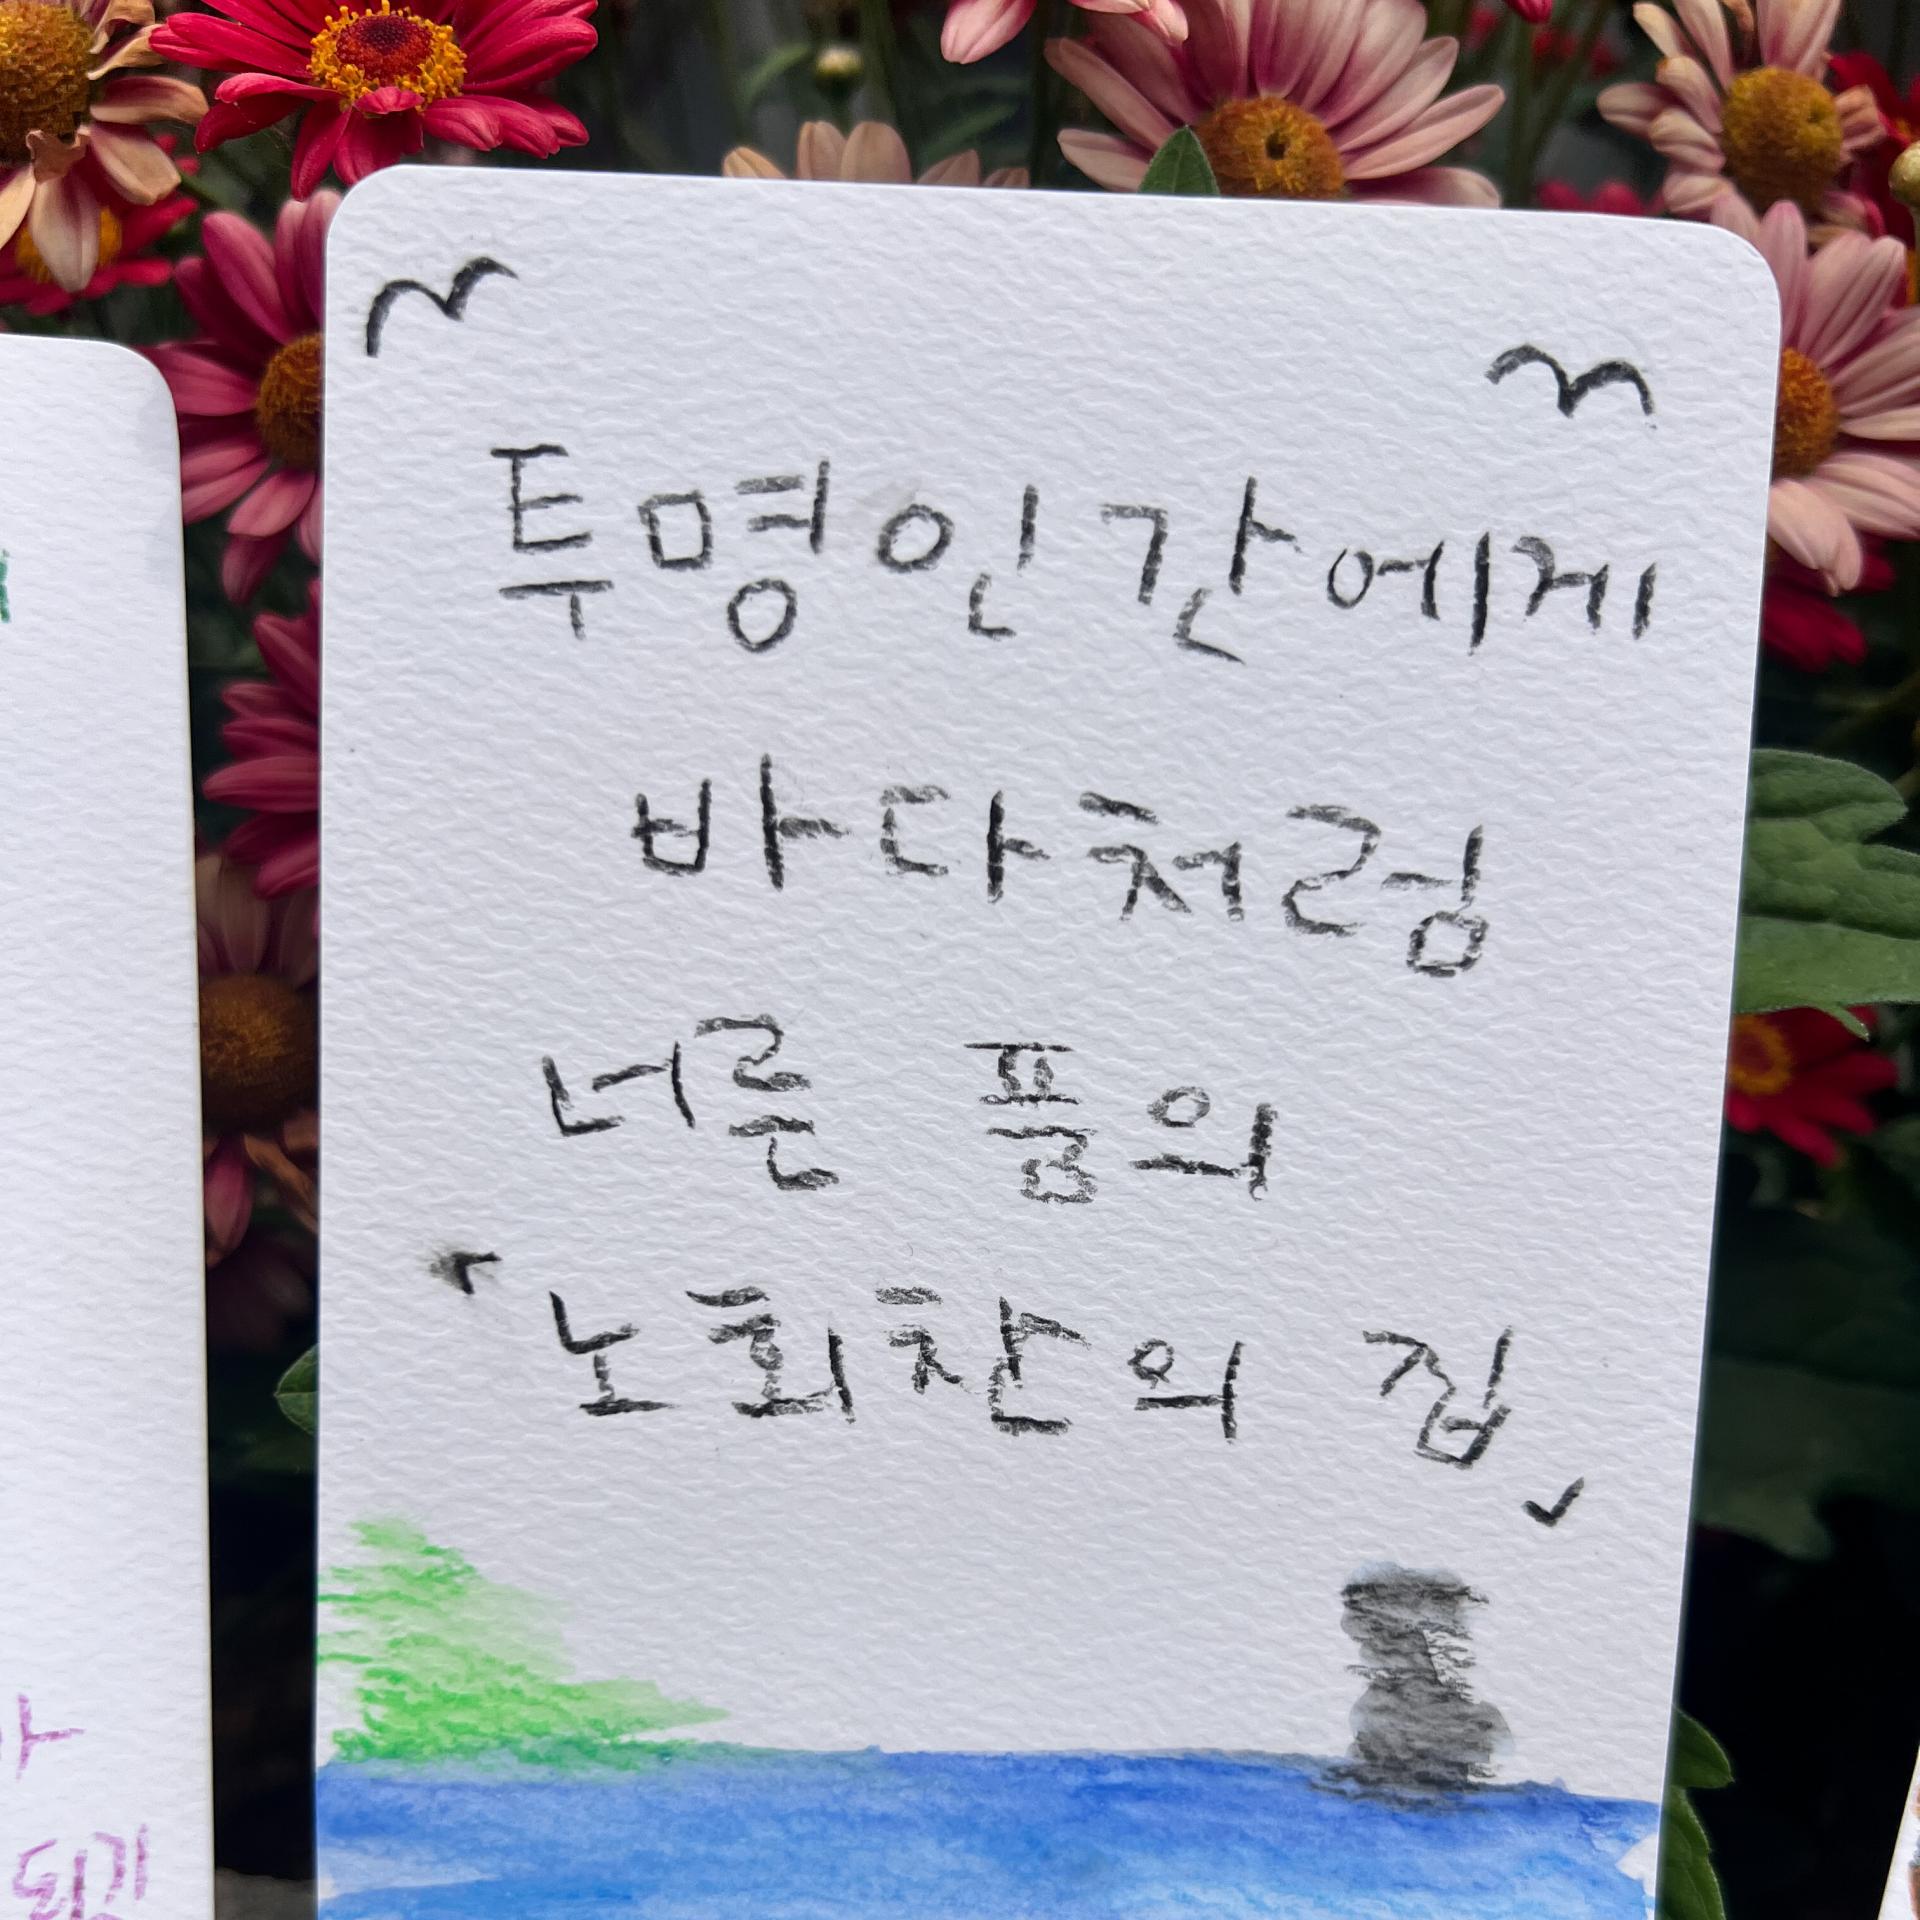 투명인간에게
바다처럼
너른 품의
'노회찬의 집'